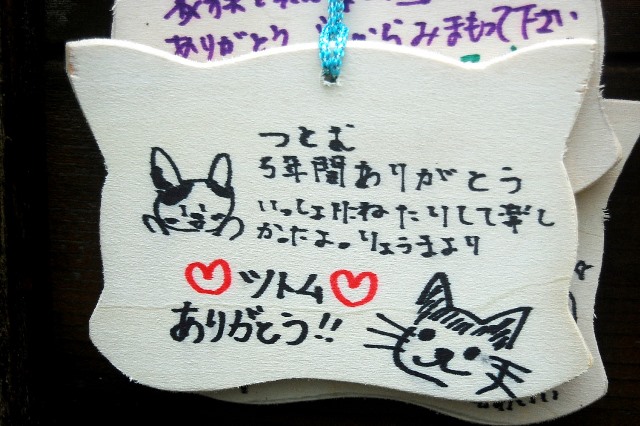 ありがとう みまもって下さい
つとむ
5年間ありがとう
いっしょにねたりして楽し
かったよ。りょうまより
ツトム
ありがとう!!